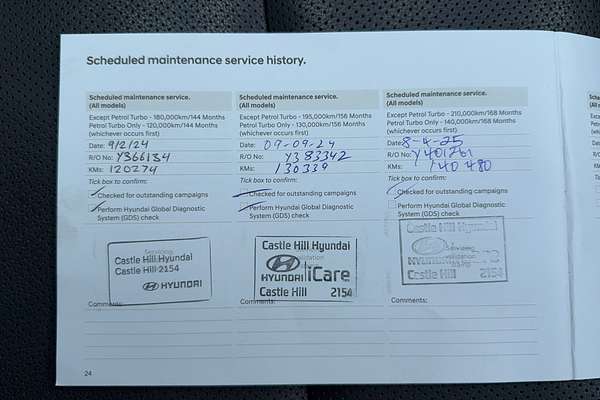 Scheduled maintenance service history.
Scheduled maintenance service.
(All models)
Except Petrol Turbo - 180,000km/144 Months
Petrol Turbo Only - 120,000km/144 Months
(whichever occurs first)
Date: 9/2/24
R/O No: Y366134
KMs: 120274
Tick box to confirm:
Checked for outstanding campaigns
Perform Hyundai Global Diagnostic
System (GDS) check
Servicing
Castle Hill Hyundai
Castle Hill 2154
HYUNDAI
Comments:
Scheduled maintenance service.
(All models)
Except Petrol Turbo - 195,000km/156 Months
Petrol Turbo Only - 130,000km/156 Months
(whichever occurs first)
Date: 09-09-24
R/O No: Y383342
KMs: 130339
Tick box to confirm:
Checked for outstanding campaigns
Perform Hyundai Global Diagnostic
System (GDS) check
Castle Hill Hyundai
HYUNDAI iCare
Castle Hill 2154
Comments:
Scheduled maintenance service.
(All models)
Except Petrol Turbo - 210,000km/168 Months
Petrol Turbo Only - 140,000km/168 Months
(whichever occurs first)
Date: 8-4-25
R/O No: Y401261
KMs: 140480
Tick box to confirm:
Checked for outstanding campaigns
Perform Hyundai Global Diagnostic
System (GDS) check
Castle Hill Hyundai
Servicing
Castle Hill 2154
Comments:
24